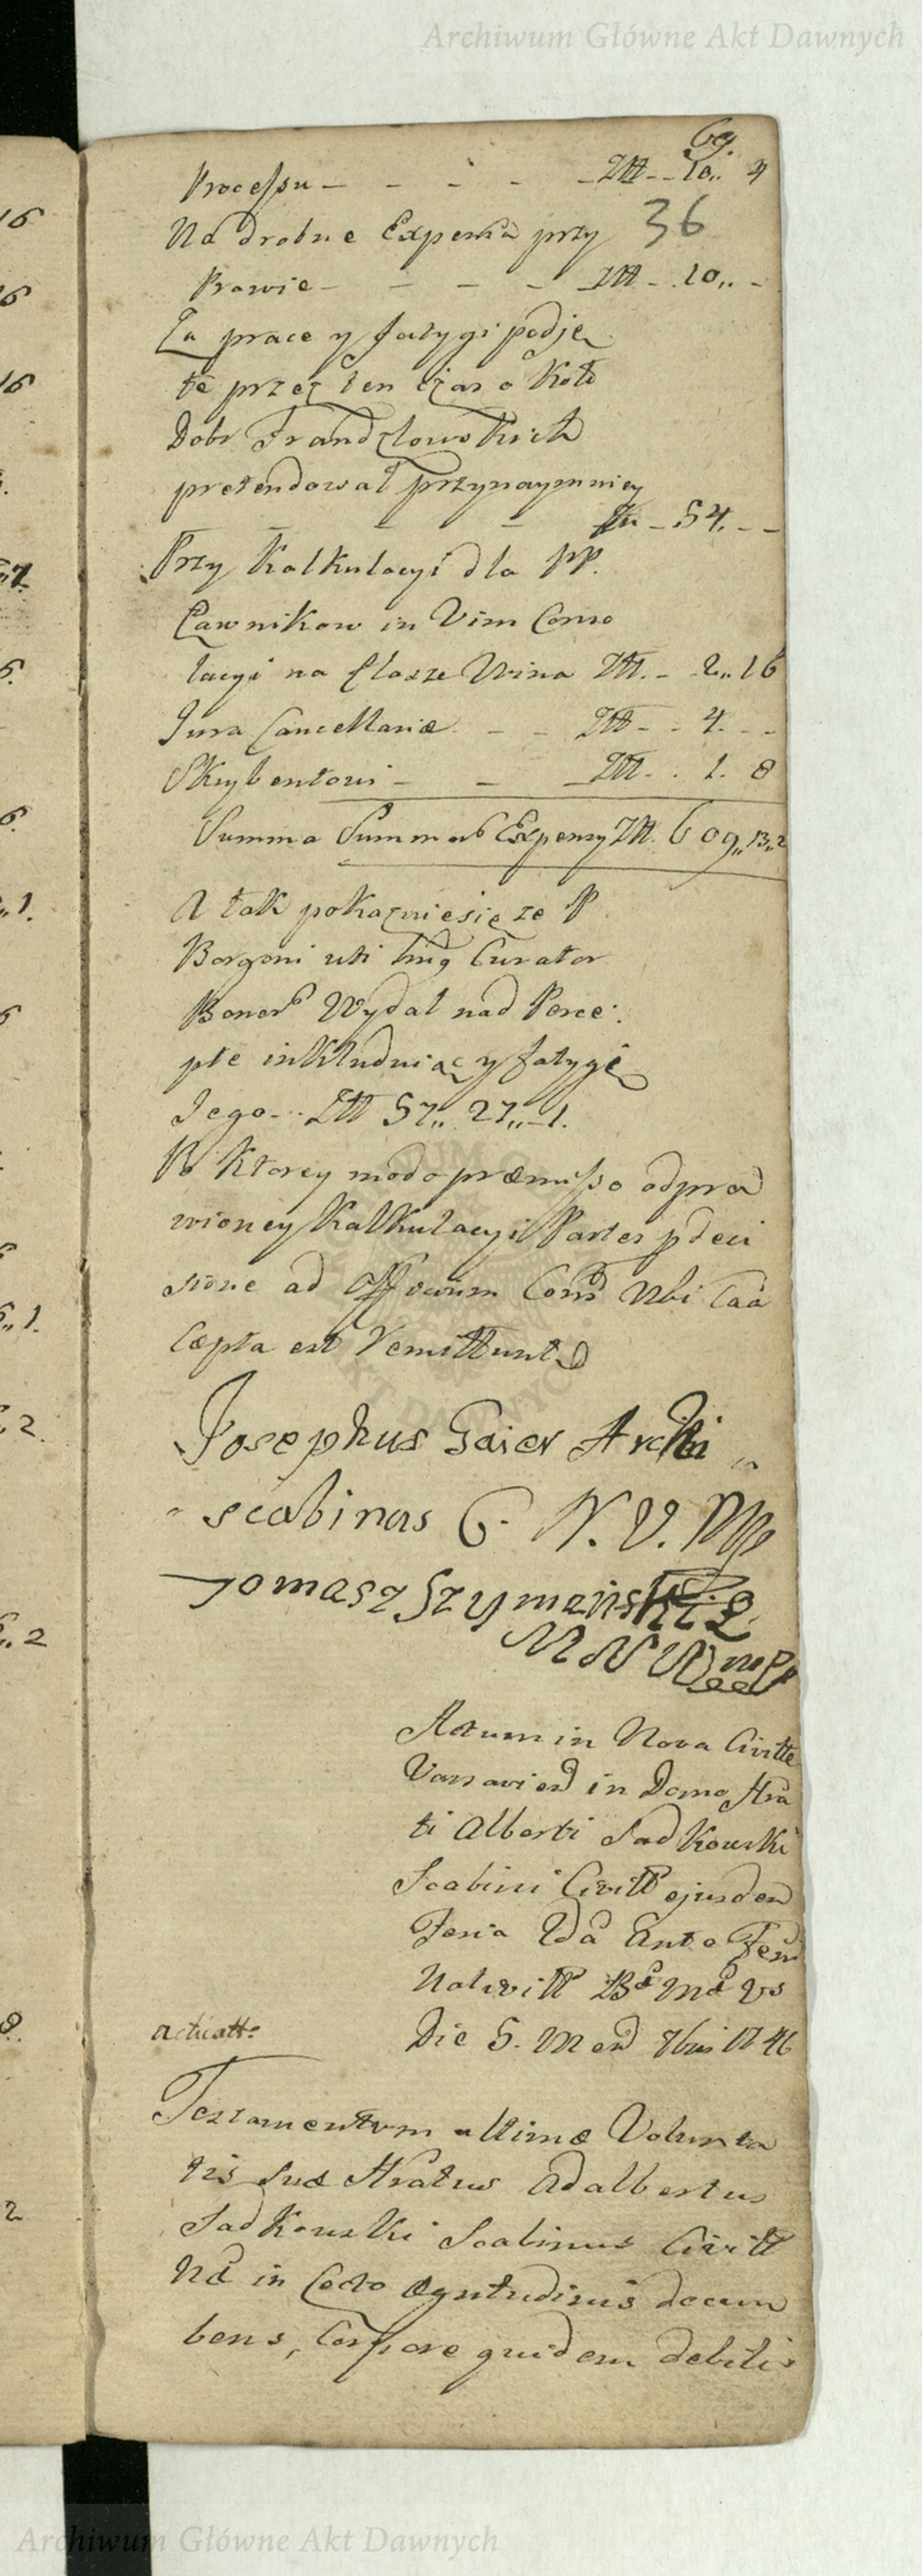 Archiwum Główne Akt Dawnych
69.
Processu - - - - - Ztt - - 10,, 4
36
Na drobne Expensa przy
Prawie - - - - Ztt - . 10,, -
Za prace y fatygi podję
te przez ten czas o Koło
Dobr Frandzlowskich
pretendował przynaymniey
- - - Ztt - 54. - -
Przy Kalkulacyi dla PP.
Ławnikow in Vim Conso
lacyi na flasze Wina Ztt. - 2,, 16
Jura Cancellariæ - - Ztt - - 4. - -
Skrybentowi - - - Ztt. . 1. 8
Summa Summarũ Expensy Ztt. 609,, 13,, 2
A tak pokazuie się ze P
Borgoni uti Curator
Bonorũ Wydał nad Perce
pte inkluduiąc y fatygę
Jego - - Ztt 57,, 27,, -1.
Po Ktorey modo præmisso odpra
wioney Kalkulacyi Partes p deci
sione ad Officium Ubi Caa
Cæpta est remittuntur
Josephus Gaier Archi „
- scabinus C. N. V. Mp
Tomasz Szymanski Ł
M N W mp
Actum in Nova Civitte
Varsavien in Domo Hra
ti Alberti Sadkowski
Scabini Civitt ejusdem
Feria 2da Ante Festũ
Nativitt B M Vs
acticatt:
Die 5. Mens 7bris 1746
Testamentum ultimæ Volunta
tis suæ Hratus Adalbertus
Sadkowski Scabinus Civitt
in Lecto ægritudinis decum
bens, Corpore quidem debilis
Archiwum Główne Akt Dawnych